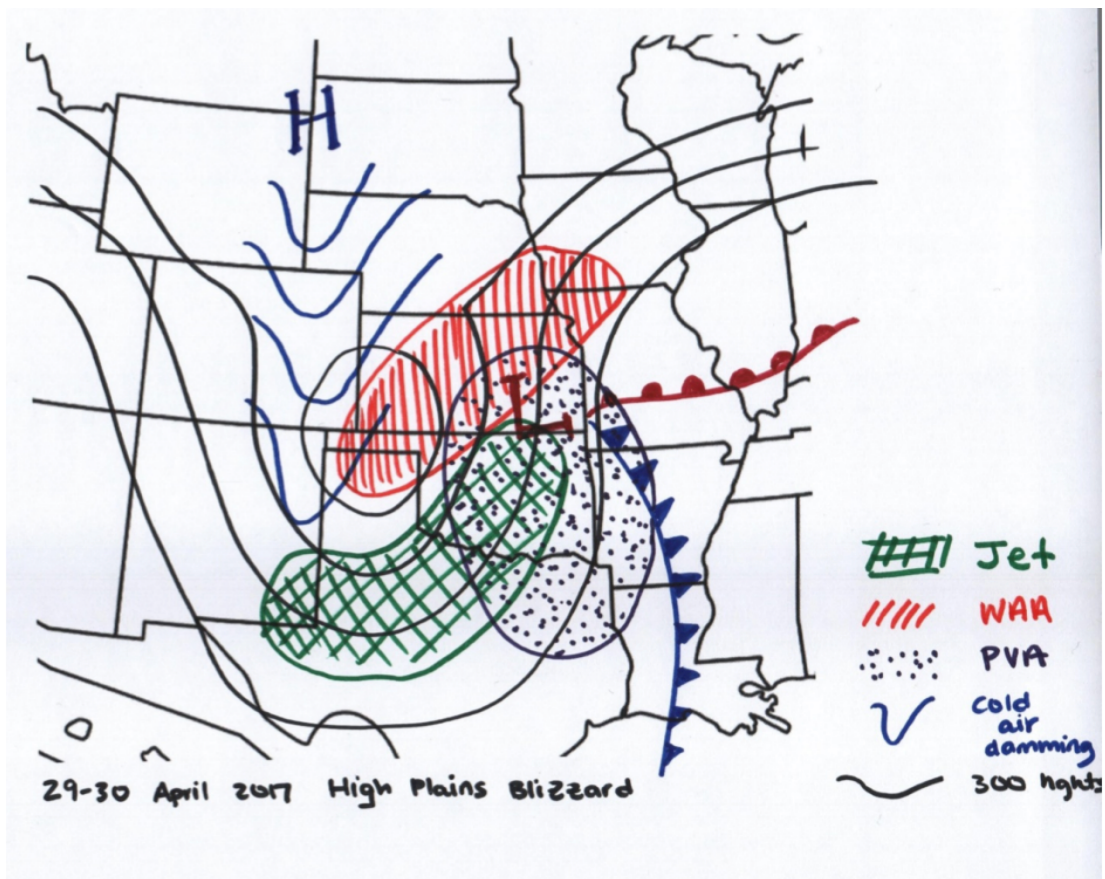 H
L
Jet
WAA
PVA
cold
air
damming
300 hghts
29-30 April 2017 High Plains Blizzard